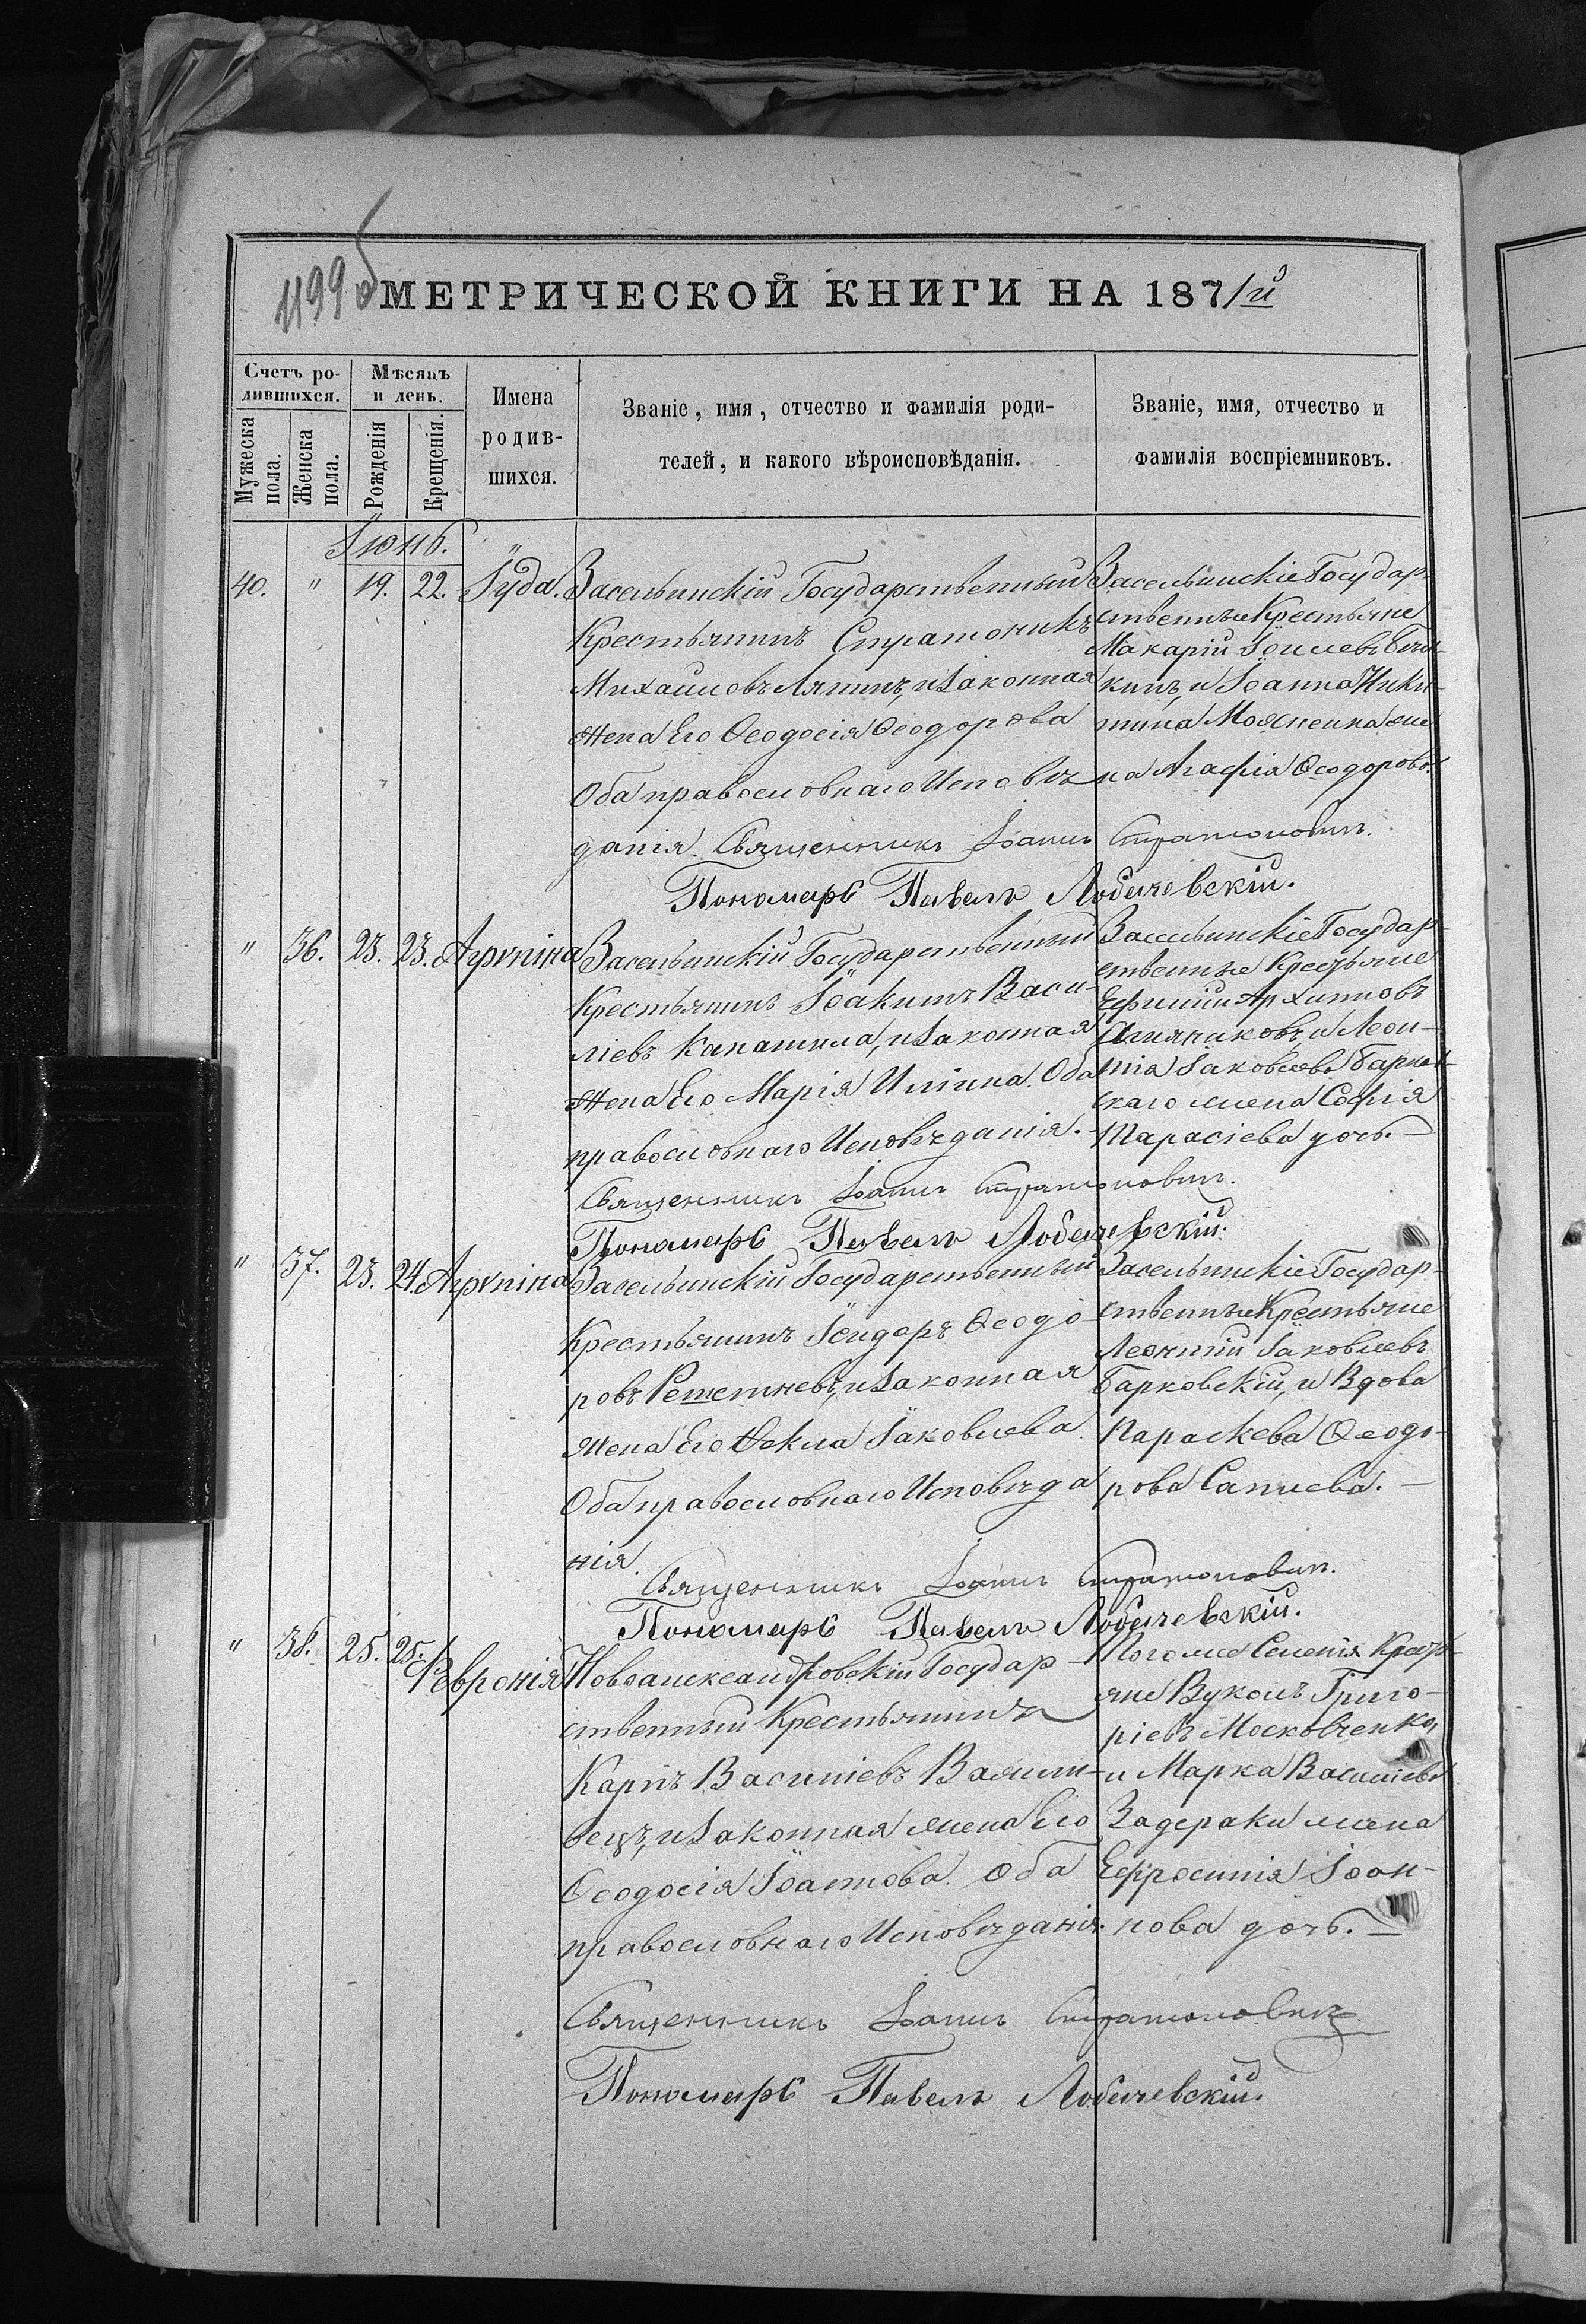 1199 об
МЕТРИЧЕСКОЙ КНИГИ НА 1871й
Счетъ ро-
дившихся.
Мужеска пола.
Женска пола.
Мѣсяцъ
и день.
Рожденія
Крещенія.
Имена
родив-
шихся.
Званіе, имя, отчество и фамилія роди-
телей, и какого вѣроисповѣданія.
Званіе, имя, отчество и
фамилія воспріемниковъ.
Іюнь.
40. " 19. 22. Іуда.
Засельинскій Государственный
Крестьянинъ Стратоникъ
Михайловъ Ляпинъ, и Законная
Жена Его Ѳеодосія Ѳеодорова
Оба православнаго Исповѣ
данія. Священникъ Іоаннъ Стратоновичъ.
Пономарь Павелъ Лобачевскій.
Засельинскіе Государ-
ственные Крестьяне
Макарій
кинъ, и Іоанна Ники-
тина жена
Агафія Ѳеодорова
" 36. 23. 23. Агрѵпіна
Засельинскій Государственный
Крестьянинъ Іоакимъ Васи-
ліевъ и Законная
Жена Его Марія Иліина. Оба
православнаго Исповѣданія.
Священникъ Іоаннъ Стратоновичъ.
Пономарь Павелъ Лобачевскій.
Засельинскіе Государ-
ственные Крестьяне
Ефимій Архиповъ
и Леон-
тія Іаковлева Барков-
скаго жена Софія
Тарасіева дочь.
" 37. 23. 24. Агрѵпіна
Засельинскій Государственный
Крестьянинъ Ісидоръ Ѳеодо-
ровъ Решетневъ, и Законная
Жена Его Ѳекла Іаковлева.
Оба православнаго Исповѣда
нія.
Священникъ Іоаннъ Стратоновичъ.
Пономарь Павелъ Лобачевскій.
Засельинскіе Государ-
ственные Крестьяне
Леонтій Іаковлевъ
Барковскій, и Вдова
Параскева Ѳеодо-
рова
" 38. 25. 25. Февронія
Новоалександровскій Государ-
ственный Крестьянинъ
Карпъ Василіевъ
и Законная жена Его
Ѳеодосія Іоаннова. Оба
православнаго Исповѣданія.
Того же Селенія Крестья
яне Вуколъ Григо-
ріевъ Московченко,
и Марка Василіева
Задераки жена
Ефросинія Іоан-
нова дочь.
Священникъ Іоаннъ Стратоновичъ
Пономарь Павелъ Лобачевскій.